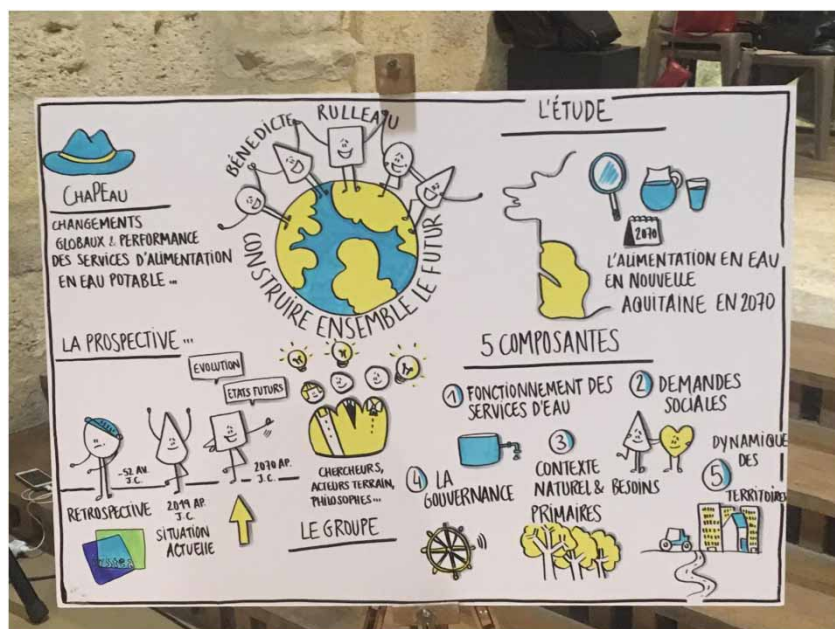 CHAPEAU
CHANGEMENTS
GLOBAUX & PERFORMANCE
DES SERVICES D'ALIMENTATION
EN EAU POTABLE ...
BÉNEDICTE RULLEAU
CONSTRUIRE ENSEMBLE LE FUTUR
L'ÉTUDE
2070
L'ALIMENTATION EN EAU
EN NOUVELLE
AQUITAINE EN 2070
LA PROSPECTIVE ...
EVOLUTION
ETATS FUTURS
-52 AV.
J.C.
2019 AP.
J.C.
2070 AP.
J.C.
RETROSPECTIVE
SITUATION
ACTUELLE
CHERCHEURS,
ACTEURS TERRAIN,
PHILOSOPHES...
LE GROUPE
5 COMPOSANTES
1 FONCTIONNEMENT DES
SERVICES D'EAU
2 DEMANDES
SOCIALES
3
CONTEXTE
NATUREL & BESOINS
PRIMAIRES
4 LA
GOUVERNANCE
5 DYNAMIQUE
DES
TERRITOIRES